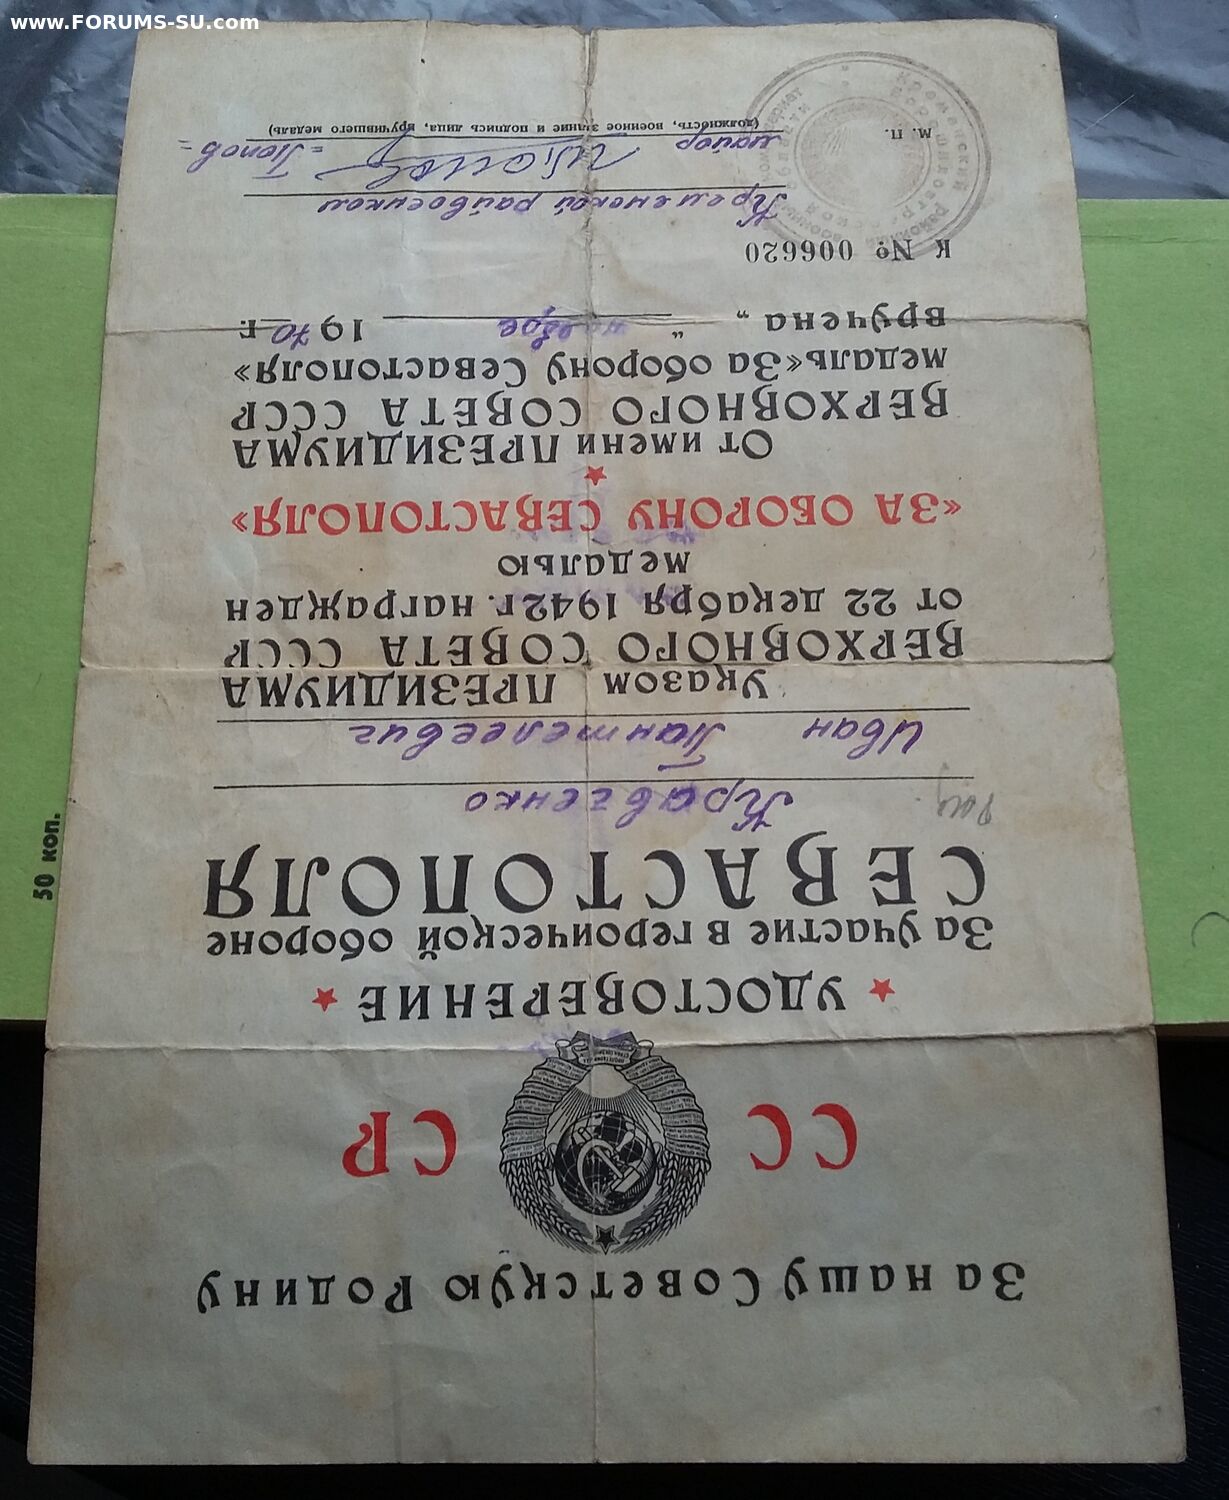 www.FORUMS-SU.com
За нашу Советскую Родину
СС СР
УДОСТОВЕРЕНИЕ
За участие в героической обороне
СЕВАСТОПОЛЯ
Кравченко
Иван Пантелеевич
Указом ПРЕЗИДИУМА
ВЕРХОВНОГО СОВЕТА СССР
от 22 декабря 1942 г. награжден
медалью
«ЗА ОБОРОНУ СЕВАСТОПОЛЯ»
От имени ПРЕЗИДИУМА
ВЕРХОВНОГО СОВЕТА СССР
медаль «За оборону Севастополя»
вручена „ “ 1970 г.
К № 006620
Кременской райвоенком
майор = Попов =
М. П.
(должность, военное звание и подпись лица, вручившего медаль)
50 коп.